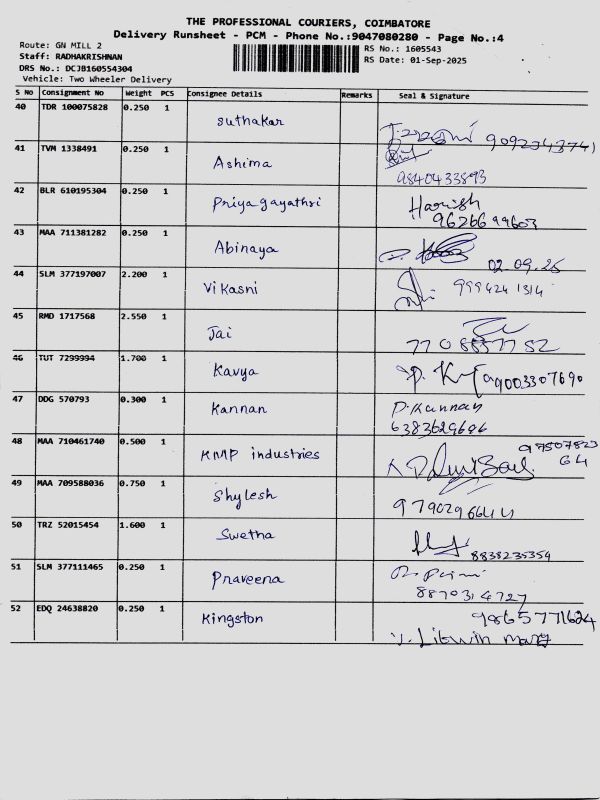 THE PROFESSIONAL COURIERS, COIMBATORE
Delivery Runsheet - PCM - Phone No.:9047080280 - Page No.:4
Route: GN MILL 2
RS No.: 1605543
Staff: RADHAKRISHNAN
RS Date: 01-Sep-2025
DRS No.: DCJB160554304
Vehicle: Two Wheeler Delivery
S No Consignment No Weight PCS Consignee Details Remarks Seal & Signature
40 TDR 100075828 0.250 1 Suthakar
41 TVM 1338491 0.250 1 Ashima
9840433893
42 BLR 610195304 0.250 1 Priya gayathri Harish
9626699603
43 MAA 711381282 0.250 1 Abinaya
02.09.25
44 SLM 377197007 2.200 1 Vikasni 999424 1314
45 RMD 1717568 2.550 1 Jai
7708857752
46 TUT 7299994 1.700 1 Kavya 9003307690
47 DDG 570793 0.300 1 Kannan P.Kannan
6383629686
48 MAA 710461740 0.500 1 KMP industries 97507823
64
49 MAA 709588036 0.750 1 Shylesh
9790296644
50 TRZ 52015454 1.600 1 Swetha
8838235354
51 SLM 377111465 0.250 1 Praveena
8870314727
52 EDQ 24638820 0.250 1 Kingston 9865771624